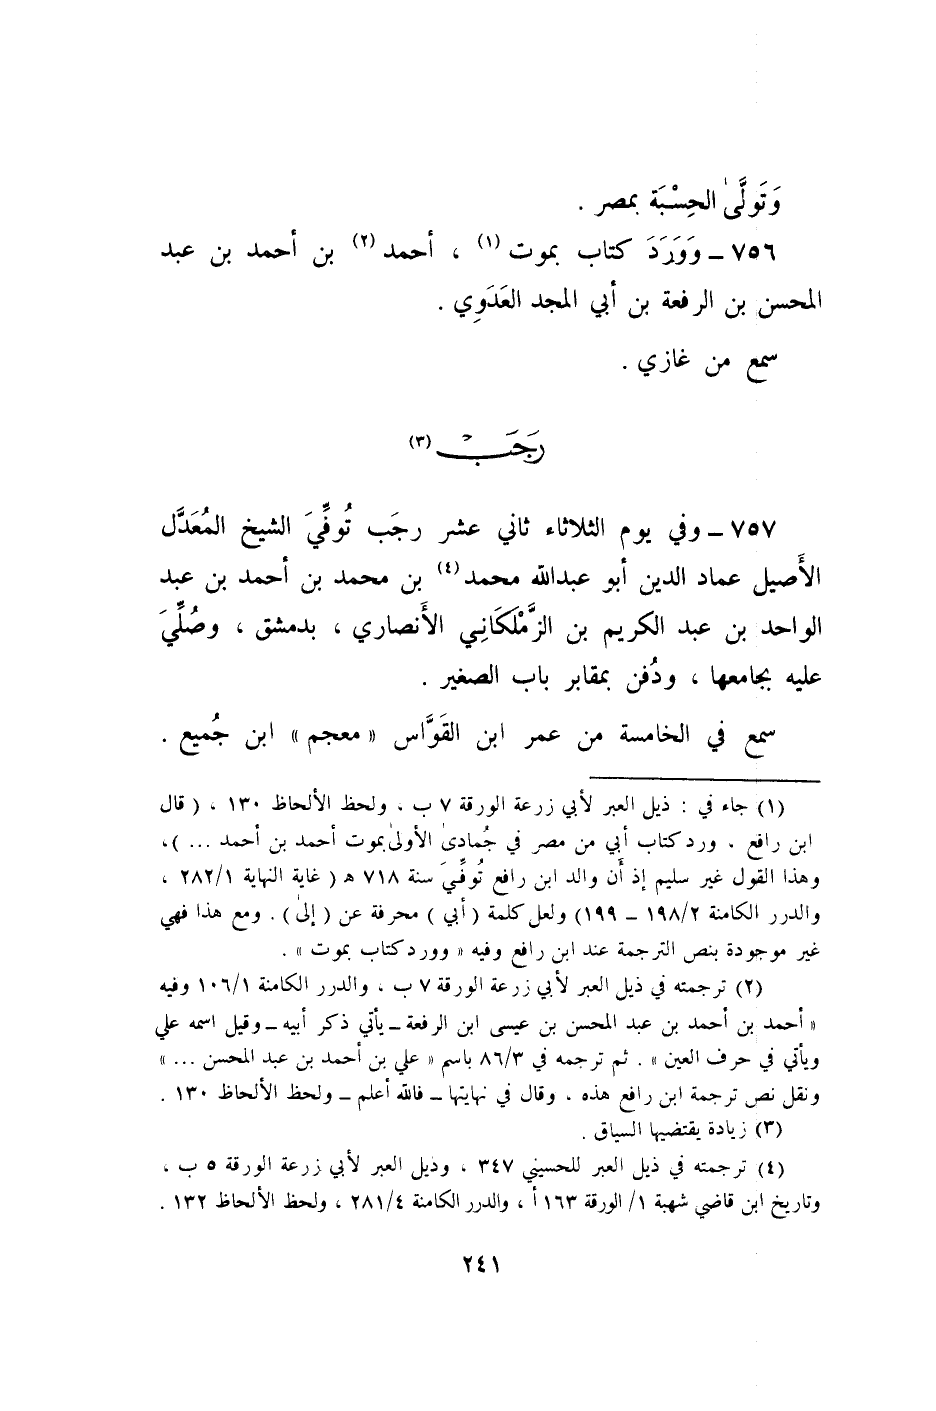 وَتَولَّىٰ الحِسْبَة بمصر .
٧٥٦ ــ وَوَرَدَ كتاب بموت (١) ، أحمد (٢) بن أحمد بن عبد
المحسن بن الرفعة بن أبي المجد العَدَوِي .
سمع من غازي .
رَجَبْ (٣)
٧٥٧ ــ وفي يوم الثلاثاء ثاني عشر رجَب تُوفِّيَ الشيخ المُعَدَّل
الأَصيل عماد الدين أبو عبدالله محمد (٤) بن محمد بن أحمد بن عبد
الواحد بن عبد الكريم بن الزَّمْلَكَانِي الأَنصاري ، بدمشق ، وصُلِّيَ
عليه بجامعها ، ودُفن بمقابر باب الصغير .
سمع في الخامسة من عمر ابن القَوَّاس « معجم » ابن جُميع .
(١) جاء في : ذيل العبر لأبي زرعة الورقة ٧ ب ، ولحظ الألحاظ ١٣٠ ، ( قال
ابن رافع ، ورد كتاب أبي من مصر في جُمادىٰ الأولىٰ بموت أحمد بن أحمد ... )،
وهذا القول غير سليم إذ أَن والد ابن رافع تُوفِّيَ سنة ٧١٨ هـ ( غاية النهاية ٢٨٢/١ ،
والدرر الكامنة ١٩٨/٢ ــ ١٩٩) ولعل كلمة ( أبي ) محرفة عن ( إلىٰ ) . ومع هذا فهي
غير موجودة بنص الترجمة عند ابن رافع وفيه « وورد كتاب بموت » .
(٢) ترجمته في ذيل العبر لأبي زرعة الورقة ٧ ب ، والدرر الكامنة ١٠٦/١ وفيه
« أحمد بن أحمد بن عبد المحسن بن عيسى ابن الرفعة ــ يأتي ذكر أبيه ــ وقيل اسمه علي
ويأتي في حرف العين » . ثم ترجمه في ٨٦/٣ باسم « علي بن أحمد بن عبد المحسن ... »
ونقل نص ترجمة ابن رافع هذه ، وقال في نهايتها ــ فالله أعلم ــ ولحظ الألحاظ ١٣٠ .
(٣) زيادة يقتضيها السياق .
(٤) ترجمته في ذيل العبر للحسيني ٣٤٧ ، وذيل العبر لأبي زرعة الورقة ٥ ب ،
وتاريخ ابن قاضي شهبة ١/ الورقة ١٦٣ أ ، والدرر الكامنة ٢٨١/٤ ، ولحظ الألحاظ ١٣٢ .
٢٤١